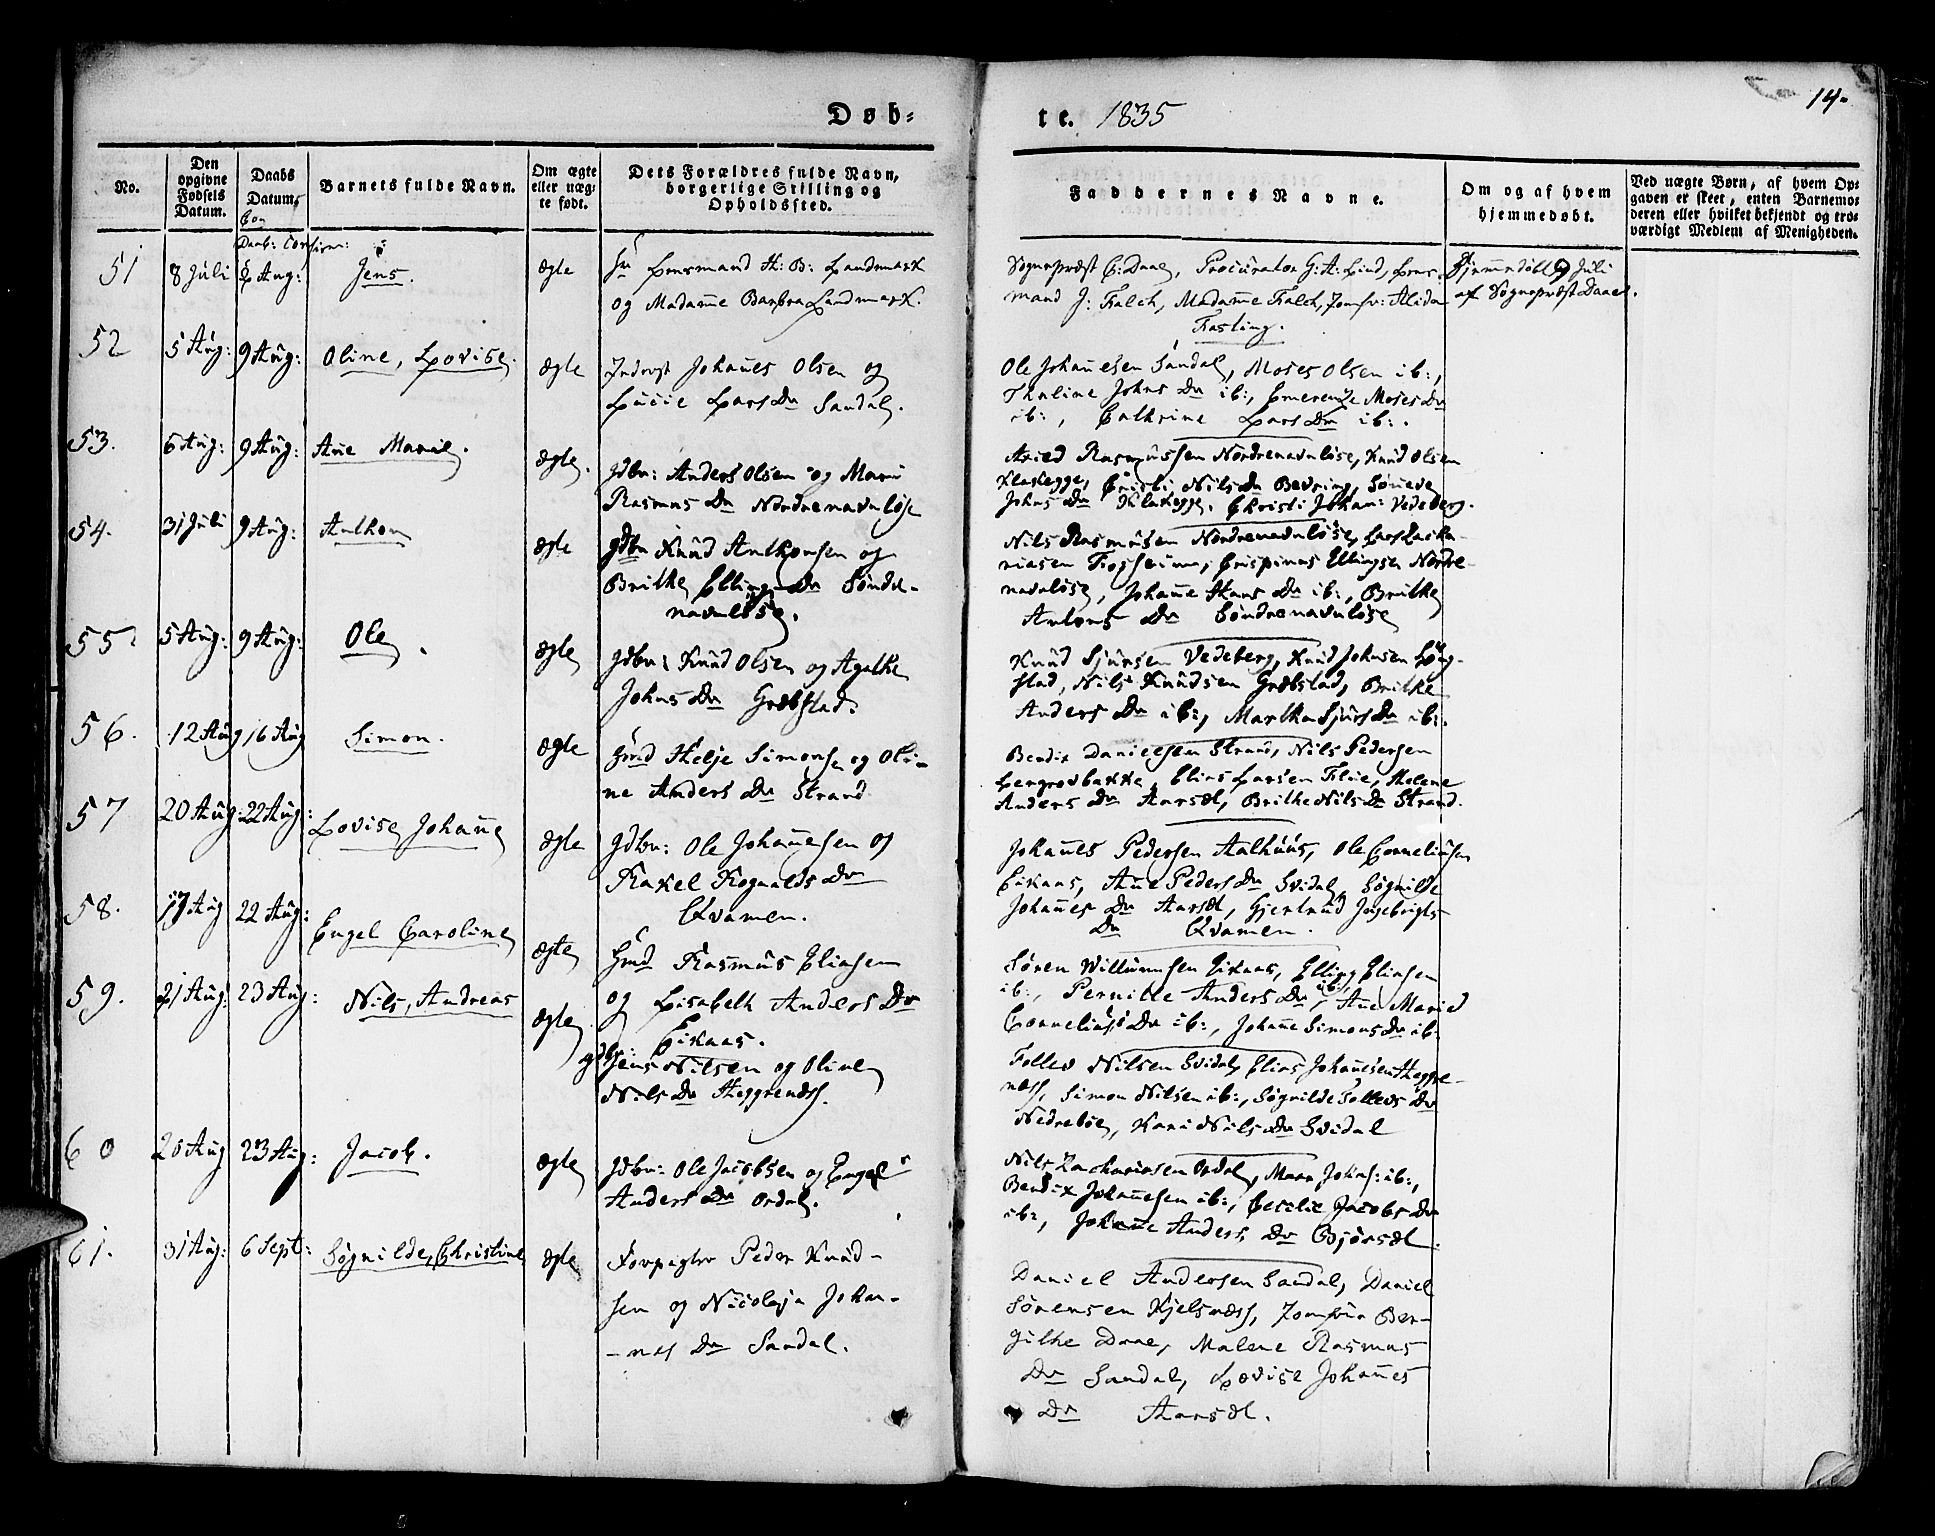 Døb-
te. 1835
14.
No.
Den opgivne Fødsels Datum.
Daabs Datum.
Barnets fulde Navn.
Om ægte eller uæg- te født.
Dets Forældres fulde Navn, borgerlige Stilling og Opholdssted.
Faddernes Navne.
Om og af hvem hjemmedøbt.
Ved uægte Børn, af hvem Op- gaven er skeet, enten Barnemo- deren eller hvilket bekjendt og tro- værdigt Medlem af Menigheden.
51 8 Juli 2 Aug: Jens. ægte Hr Lensmand H: B: Landmark
og Madame Barbra Landmark.
Sognepræst C: Daae, Procurator G: A: Lind, Lens-
mand J: Falch, Madame Falch, Jomfr: Alida
Fasting.
Hjemmedøbt 9 Juli
af Sognepræst Daae.
52 5 Aug: 9 Aug: Oline, Lovise. ægte Inderst Johannes Olsen og
Lucie Lars Dr Sandal.
Ole Johannesen Sandal, Moses Olsen ib:,
Thaline Johns Dr ib:, Emerenze Moses Dr
ib:, Cathrine Lars Dr ib:.
53. 6 Aug: 9 Aug: Ane Marie. ægte. Gdbr: Anders Olsen og Mari
Rasmus Dr Nordrenavnløse
Rasmussen Nordrenavnløse, Knud Olsen
Klakegge, Nils Dr Bevring, Sønneve
Johns Dr Klakegge. Christi Johan: Vedeberg.
54. 31 Juli 9 Aug: Anthon ægte Gdbr Knud Anthonsen og
Brithe Ellings Dr Søndre-
navnløse.
Nils Rasmusen Nordrenavnløse, Lars Zacha-
riasen Fosheim, Crispinus Ellingsen Nordre-
navnløse, Johanne Hans Dr ib:, Brithe
Antons Dr Søndrenavnløse
55. 5 Aug: 9 Aug: Ole. ægte Gdbr: Knud Olsen og Agathe
Johns Dr Græbstad.
Knud Sjursen Vedeberg, Knud Johnsen Løng-
stad, Nils Knudsen Græbstad, Brithe
Anders Dr ib:, Martha Sjurs Dr ib:.
56. 12 Aug 16 Aug Simon. ægte Gmd Helje Simonsen og Oli-
ne Anders Dr Strand
Bendix Danielsen Strand, Nils Pedersen
Bergrovbakke, Elias Larsen Flåe, Malene
Anders Dr Aarsæt, Brithe Nils Dr Strand.
57 20 Aug: 22 Aug: Lovise Johanne ægte Gdbr: Ole Johannesen og
Rakel Rognalds Dr
Qvamen.
Johannes Pedersen Aalhuus, Ole Corneliusen
Eikaas, Ane Peders Dr Svidal, Søgnilde
Johannes Dr Aarsæt, Gjertrud Ingebrigts
Dr Qvamen.
58. 17 Aug 22 Aug: Engel Caroline ægte Gmd Rasmus Eliasen
og Lisabeth Anders Dr
Eikaas.
Søren Willumsen Eikaas, Elling Eliasen
ib:, Pernille Anders Dr ib:, Ane Marie
Cornelius Dr ib:, Johanne Simons Dr ib:
59. 21 Aug: 23 Aug: Nils, Andreas ægte Gdbr: Jens Nilsen og Oline
Nils Dr Heggrenæss.
Tollev Nilsen Svidal, Elias Johannesen Heggre-
næss, Simon Nilsen ib:, Søgnilde Tollevs Dr
Nedrebøe, Kari Nils Dr Svidal
60 20 Aug 23 Aug: Jacob. ægte Gdbr: Ole Jacobsen og Engel
Anders Dr Ordal.
Nils Zachariasen Ordal, Johns: ib:,
Bendix Johannesen ib:, Cecilie Jacobs Dr
ib:, Johanne Anders Dr Bjørsæt.
61. 31 Aug: 6 Sept: Søgnilde, Christine ægte Forpagter Peder Knud-
sen og Nicolaja Johan-
-nes Dr Sandal.
Daniel Andersen Sandal, Daniel
Sørensen Kjelsnæss, Jomfrue Ber-
githe Daae, Malene Rasmus
Dr Sandal, Lovise Johannes
Dr Aarsæt.